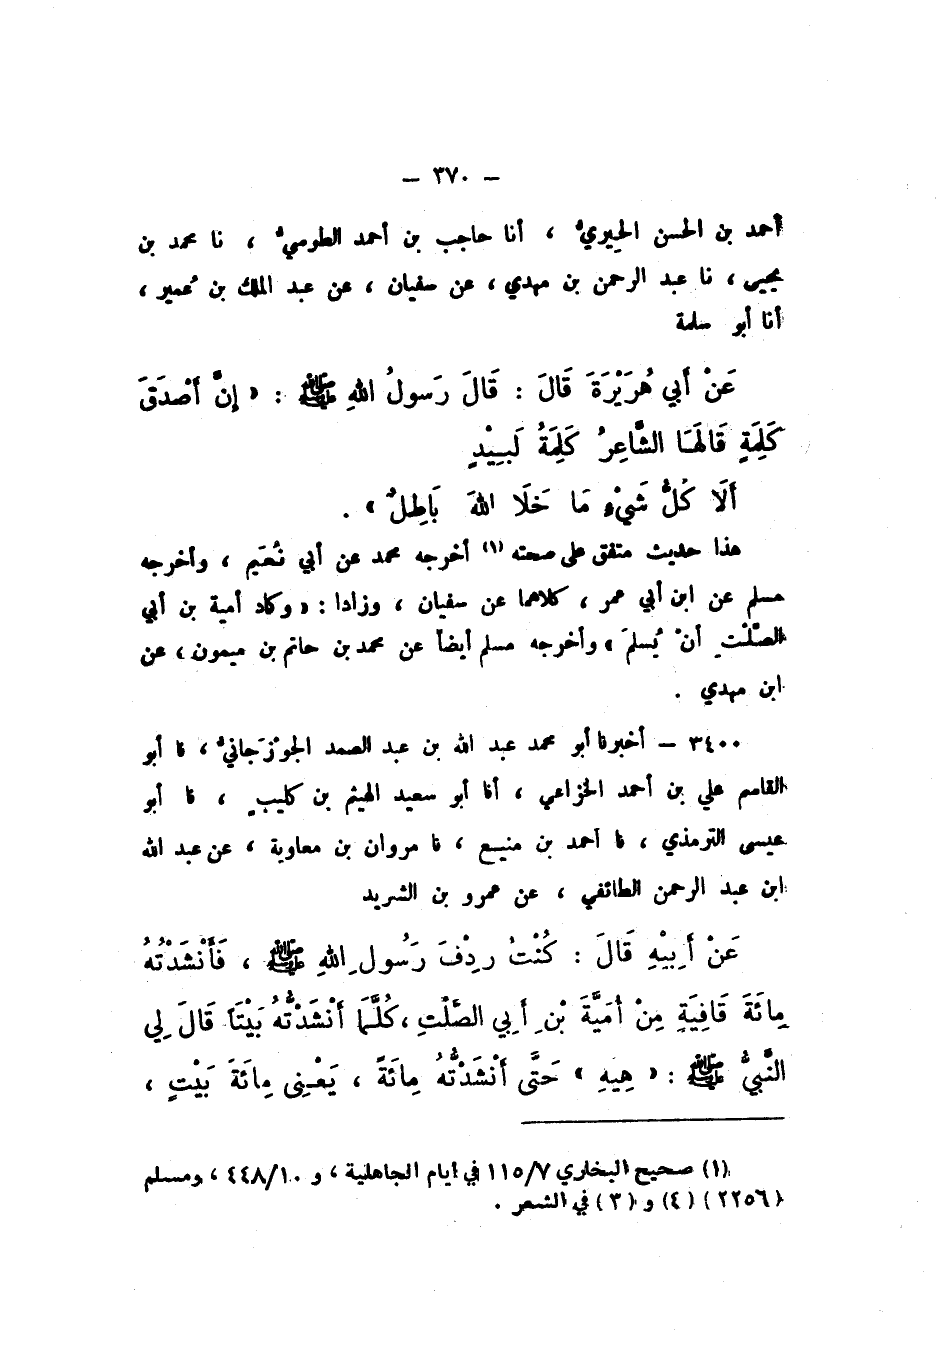 – ٣٧٠ –
أحمد بن الحسن الحِيريُّ ، أنا حاجب بن أحمد الطوسيُّ ، نا محمد بن
يحيى ، نا عبد الرحمن بن مهدي ، عن سفيان ، عن عبد الملك بن عُمير ،
أنا أبو سلمة
عَنْ أَبِي هُرَيْرَةَ قَالَ : قَالَ رَسولُ اللهِ ﷺ : « إِنَّ أَصْدَقَ
كَلِمَةٍ قَالَهَا الشَّاعِرُ كَلِمَةُ لَبِيْدٍ
أَلَا كُلُّ شَيْءٍ مَا خَلَا اللهَ بَاطِلٌ » .
هذا حديث متفق على صحته (١) أخرجه محمد عن أبي نُعَيم ، وأخرجه
مسلم عن ابن أبي عمر ، كلاهما عن سفيان ، وزادا : « وكاد أمية بن أبي
الصَّلْتِ أنْ يُسلمَ » وأخرجه مسلم أيضاً عن محمد بن حاتم بن ميمون ، عن
ابن مهدي .
٣٤٠٠ – أخبرنا أبو محمد عبد الله بن عبد الصمد الجوْزَجانيُّ ، نا أبو
القاسم علي بن أحمد الخزاعي ، أنا أبو سعيد الهيثم بن كليبٍ ، نا أبو
عيسى الترمذي ، نا أحمد بن منيع ، نا مروان بن معاوية ، عن عبد الله
ابن عبد الرحمن الطائفي ، عن عمرو بن الشريد
عَنْ أَبِيْهِ قَالَ : كُنْتُ رِدْفَ رَسُولِ اللهِ ﷺ ، فَأَنْشَدْتُهُ
مِائَةَ قَافِيَةٍ مِنْ أُمَيَّةَ بْنِ أَبِي الصَّلْتِ ، كُلَّمَا أَنْشَدْتُهُ بَيْتَاً قَالَ لِي
النَّبِيُّ ﷺ : « هِيهِ » حَتَّى أَنْشَدْتُهُ مِائَةً ، يَعْنِي مِائَةَ بَيْتٍ ،
(١) صحيح البخاري ١١٥/٧ في أيام الجاهلية ، و ٤٤٨/١٠ ، ومسلم
(٢٢٥٦) (٤) و (٣) في الشعر .